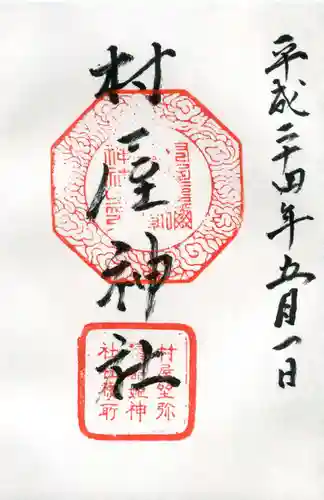 平成二十四年五月一日
村屋神社
村屋坐弥
冨都比売神
社社務所